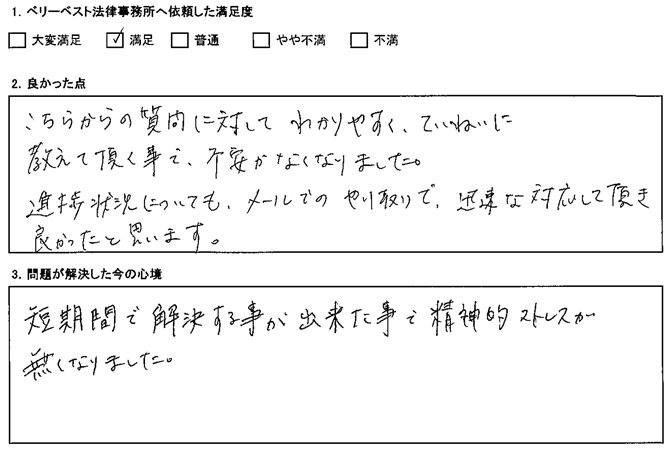 1. ベリーベスト法律事務所へ依頼した満足度
大変満足 ✓ 満足 普通 やや不満 不満
2. 良かった点
こちらからの質問に対して わかりやすく、ていねいに
教えて頂く事で、不安がなくなりました。
進捗状況についても、メールでの やり取りで、迅速な対応して頂き
良かったと思います。
3. 問題が解決した今の心境
短期間で解決する事が出来た事で精神的ストレスが
無くなりました。